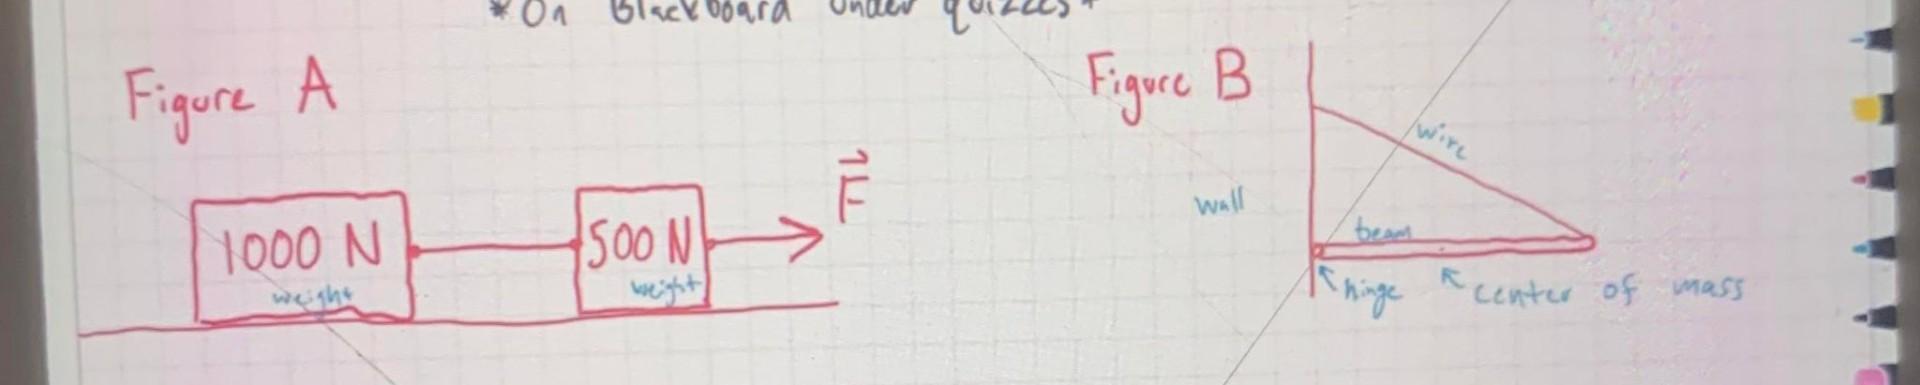 *On Blackboard under quizzes*
Figure A
F
1000 N
weight
500 N
weight
Figure B
wire
wall
beam
hinge
center of mass